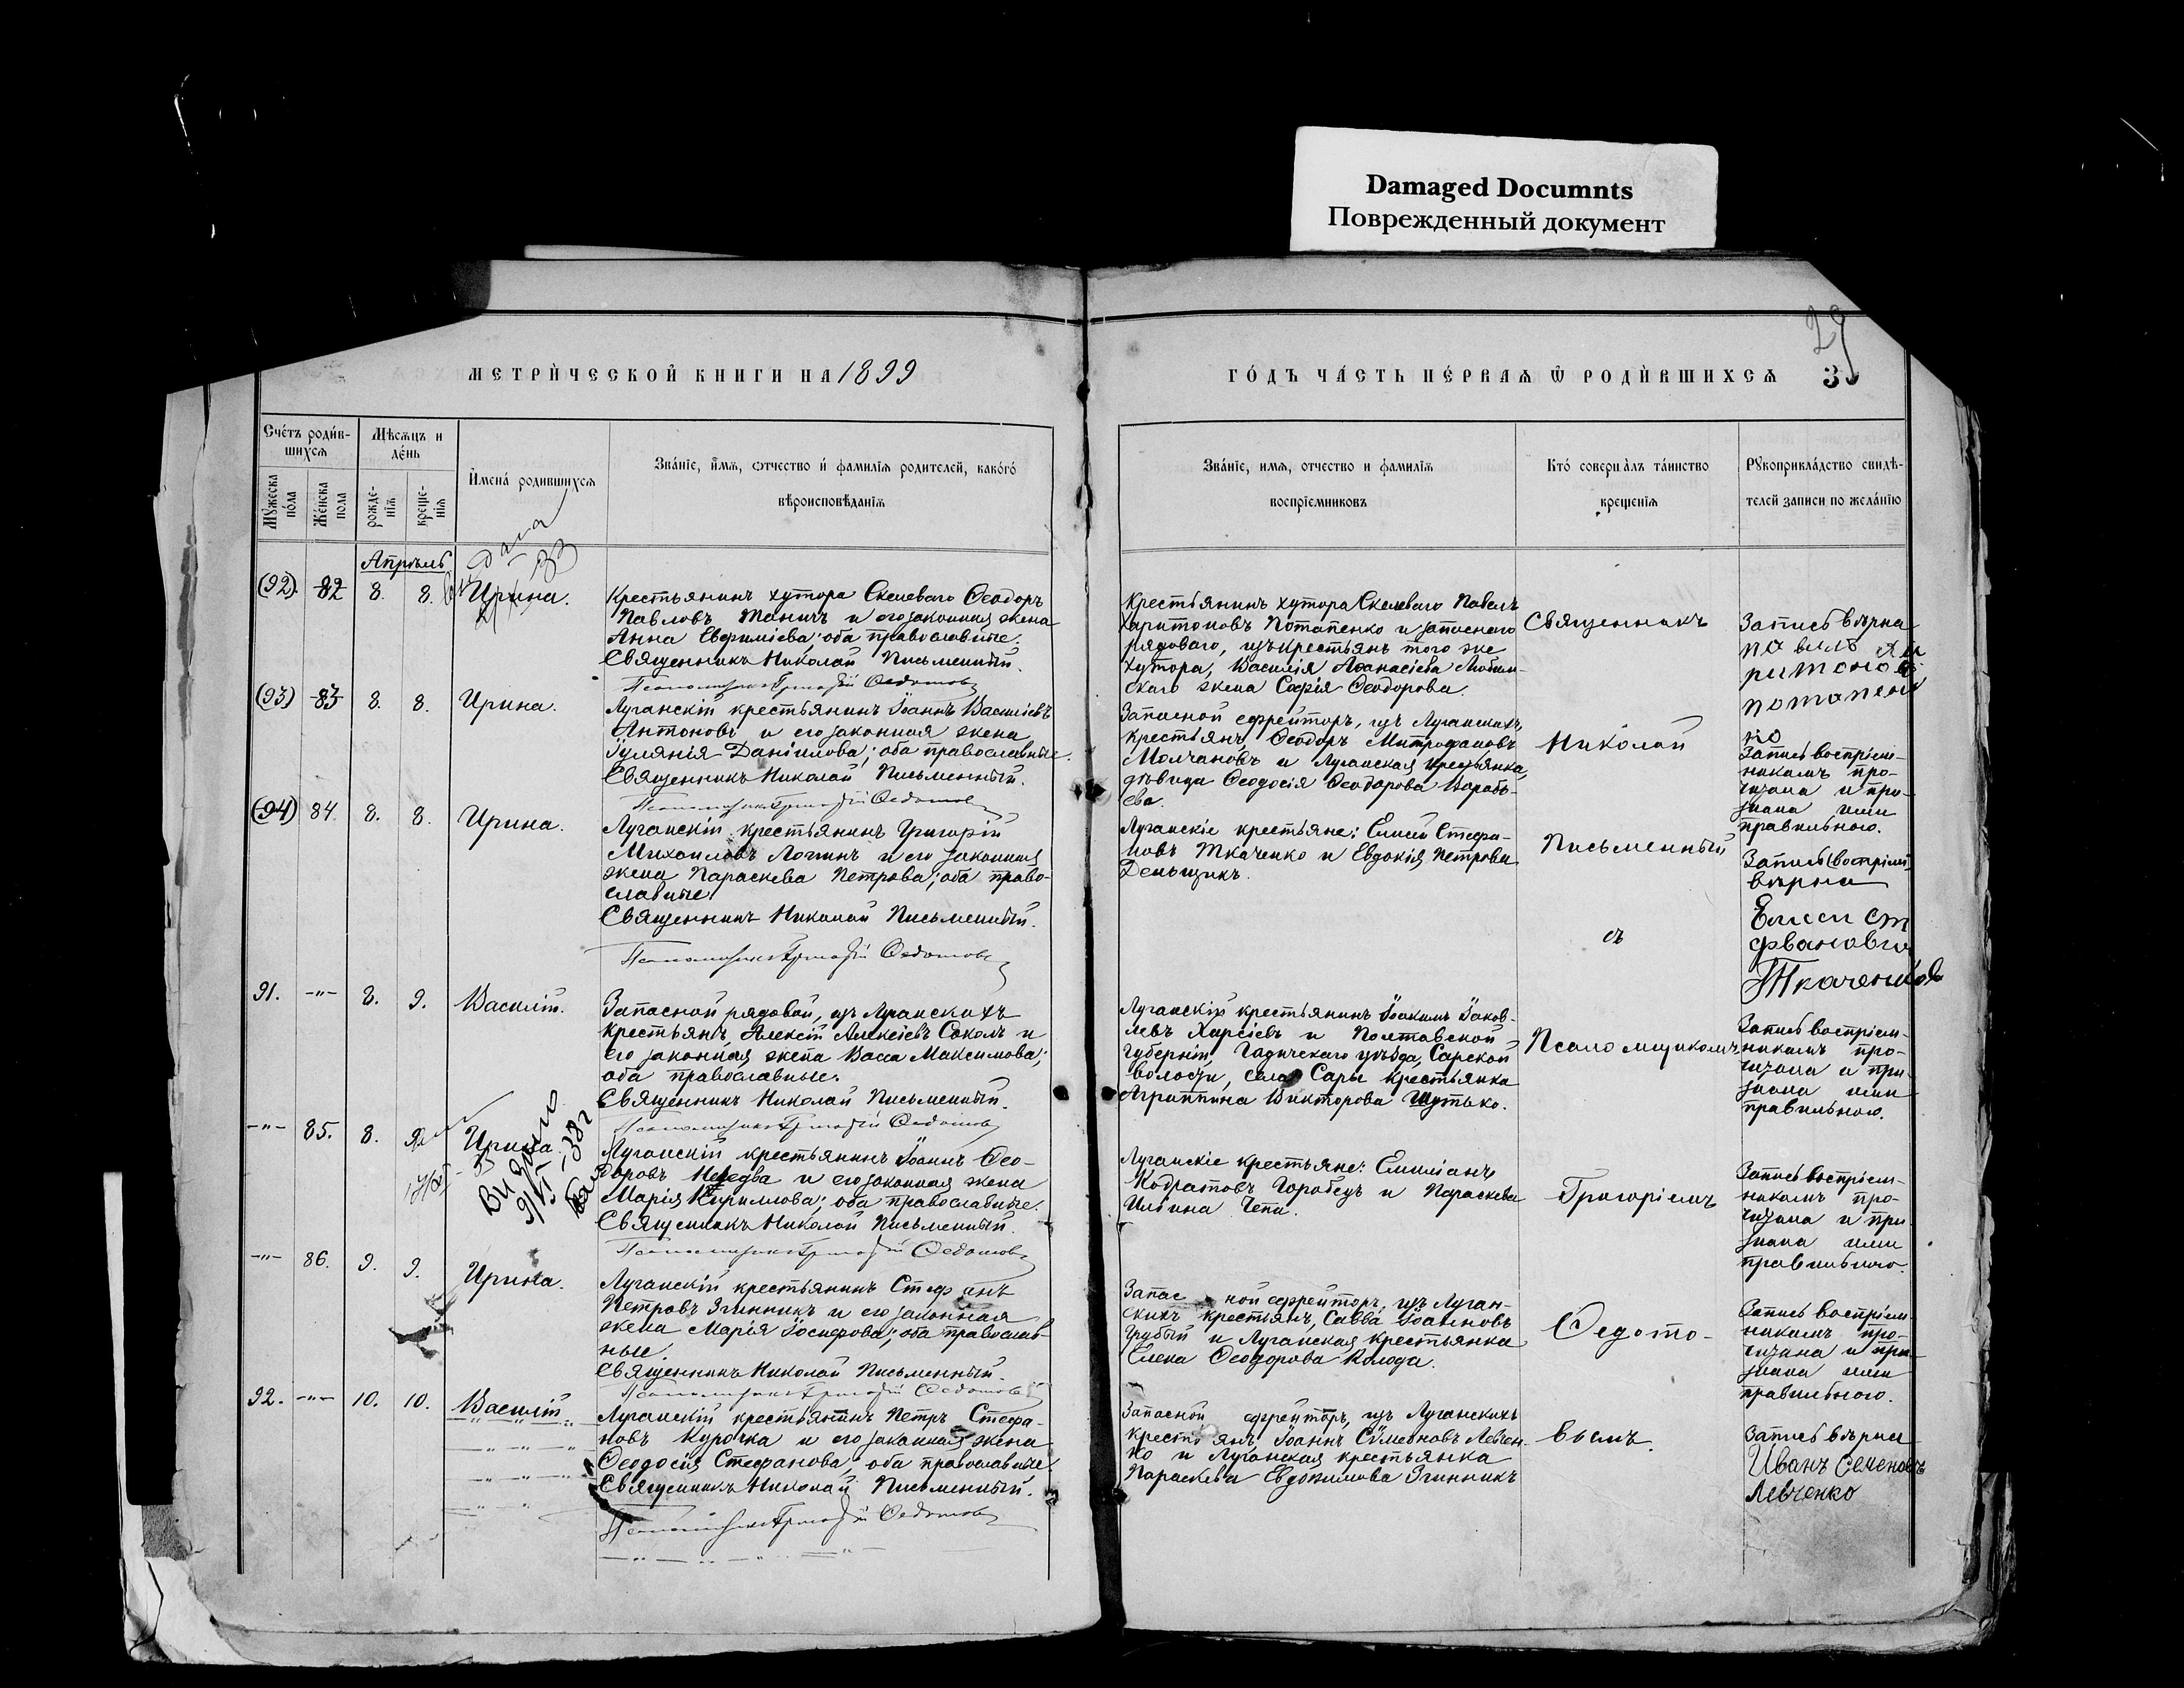 Damaged Documnts
Поврежденный документ
29
МЕТРИ́ЧЕСКОЙ КНИГИ НА 1899
ГО́ДЪ ЧА́СТЬ ПЕ́РВАѦ Ѿ РОДИ́ВШИХСѦ
Сче́тъ роди́в-
шихсѧ
Мѣсѧцъ и
де́нь
Имена́ родившихсѧ
Зва́нїе, и҆мѧ, ѻтчество и҆ фамилїѧ родителей, како́гѡ
вѣроисповѣданїѧ
Мꙋжеска
по́ла
Же́нска
пола
рожде-
нїѧ
креще-
нїѧ
Зва́нїе, имѧ, отчество и фамилїѧ
воспрїемниковъ
Кто́ соверша́лъ та́инство
крещенїѧ
Рꙋкоприкла́дство свидѣ-
телей записи по жела́нїю
Апрѣль
(92). 82 8. 8. Ирина.
Крестьянинъ хутора Скелеваго Ѳеодоръ
Павловъ и его законная жена
Анна Евфиміева; оба православные.
Священникъ Николай Письменный.
Псаломщикъ Григорій Ѳедотовъ
Крестьянинъ хутора Скелеваго Павелъ
Харитоновъ Потапенко и запаснаго
рядоваго, изъ крестьянъ того же
хутора, Василія Аѳанасіева
жена Софія Ѳеодорова.
Священникъ
Запись вѣрна
(93) 83 8. 8. Ирина.
Луганскій крестьянинъ Іоаннъ Василіевъ
Антоновъ и его законная жена
Іуліанія Даніилова; оба православные.
Священникъ Николай Письменный.
Псаломщикъ Григорій Ѳедотовъ
Запасной ефрейторъ, изъ Луганскихъ
крестьянъ, Ѳеодоръ Митрофановъ
Молчановъ и Луганская крестьянка,
дѣвица Ѳеодосія Ѳеодорова Воробь-
ева.
Николай
Запись воспріем-
никамъ про-
читана и при-
знана ими
правильною.
(94) 84. 8. 8. Ирина.
Луганскій крестьянинъ Григорій
Михаиловъ Логинъ и его законная
жена Параскева Петрова; оба право-
славные.
Священникъ Николай Письменный.
Псаломщикъ Григорій Ѳедотовъ
Луганскіе крестьяне: Елисей Стефа-
новъ Ткаченко и Евдокія Петрова
Деньщикъ.
Письменный
съ
вѣрна
Ткаченко
91. -"- 8. 9. Василій.
Запасной рядовой, изъ Луганскихъ
крестьянъ, Алексій Алексіевъ Соколъ и
его законная жена Васса Максимова;
оба православные.
Священникъ Николай Письменный.
Псаломщикъ Григорій Ѳедотовъ
Луганскій крестьянинъ Іоакимъ Іаков-
левъ Харсіевъ и Полтавской
губерніи, Гадячскаго уѣзда, Сарской
волости, села Сары крестьянка
Агриппина Викторова Шутько.
Псаломщикомъ
Запись воспріем-
никамъ про-
читана и при-
знана ими
правильною.
-"- 85. 8. 9. Ирина.
Луганскій крестьянинъ Іоаннъ Ѳео-
доровъ и его законная жена
Марія Кириллова; оба православные.
Священникъ Николай Письменный.
Псаломщикъ Григорій Ѳедотовъ
Луганскіе крестьяне: Емиліанъ
Кодратовъ Горобецъ и Параскева
Ильина
Григоріемъ
Запись воспріем-
никамъ про-
читана и при-
знана ими
правильною.
-"- 86. 9. 9. Ирина.
Луганскій крестьянинъ Стефанъ
Петровъ Згинникъ и его законная
жена Марія Іосифова; оба православ-
ные.
Священникъ Николай Письменный.
Псаломщикъ Григорій Ѳедотовъ
Запасной ефрейторъ, изъ Луган-
скихъ крестьянъ, Савва Іоанновъ
Грубый и Луганская крестьянка
Елена Ѳеодорова Колода.
Ѳедото-
Запись воспріем-
никамъ про-
читана и при-
знана ими
правильною.
92. -"- 10. 10. Василій
Луганскій крестьянинъ Петръ Стефа-
новъ Курочка и его законная жена
Ѳеодосія Стефанова; оба православные
Священникъ Николай Письменный.
Псаломщикъ Григорій Ѳедотовъ
Запасной ефрейторъ, изъ Луганскихъ
крестьянъ, Іоаннъ Сѵмеоновъ Левчен-
ко и Луганская крестьянка
Параскева Евдокимова Згинникъ
вымъ.
Запись вѣрна
Иванъ Семеновъ
Левченко